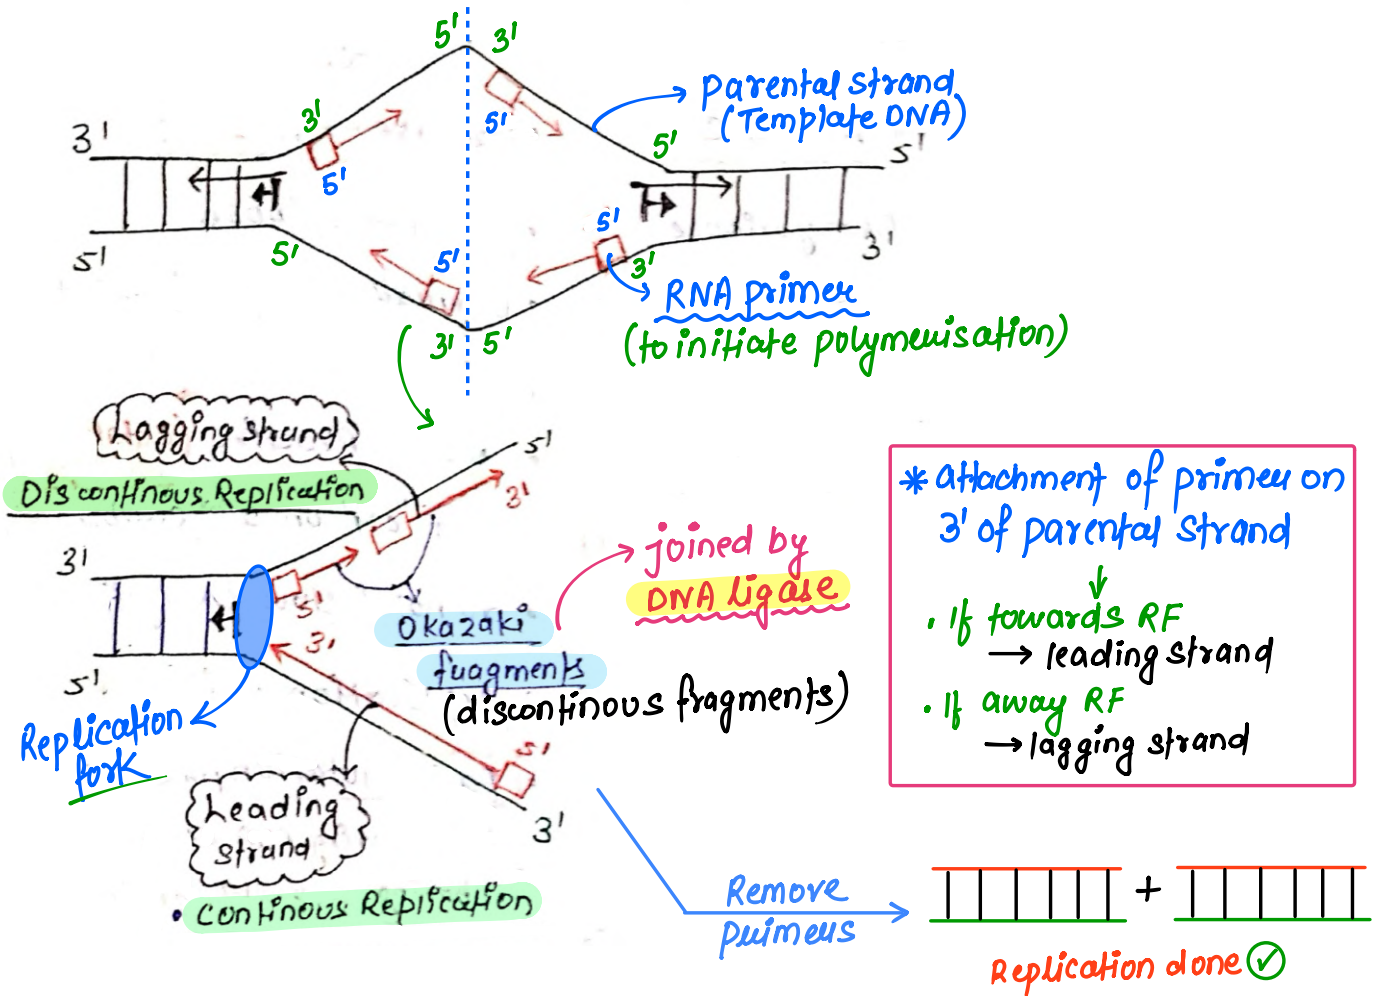 5' 3'
Parental strand
(Template DNA)
3' 3' 5' 5' 5'
5'
5' 5' 5' 5' 3' 3'
RNA primer
(to initiate polymerisation)
3' 5'
Lagging strand
Discontinous Replication
5'
3'
3'
5'
3'
5'
Okazaki
fragments
(discontinous fragments)
joined by
DNA ligase
Replication
fork
5'
3'
Leading
strand
• Continous Replication
* attachment of primer on
3' of parental strand
• If towards RF
→ leading strand
• If away RF
→ lagging strand
Remove
primers
+
Replication done